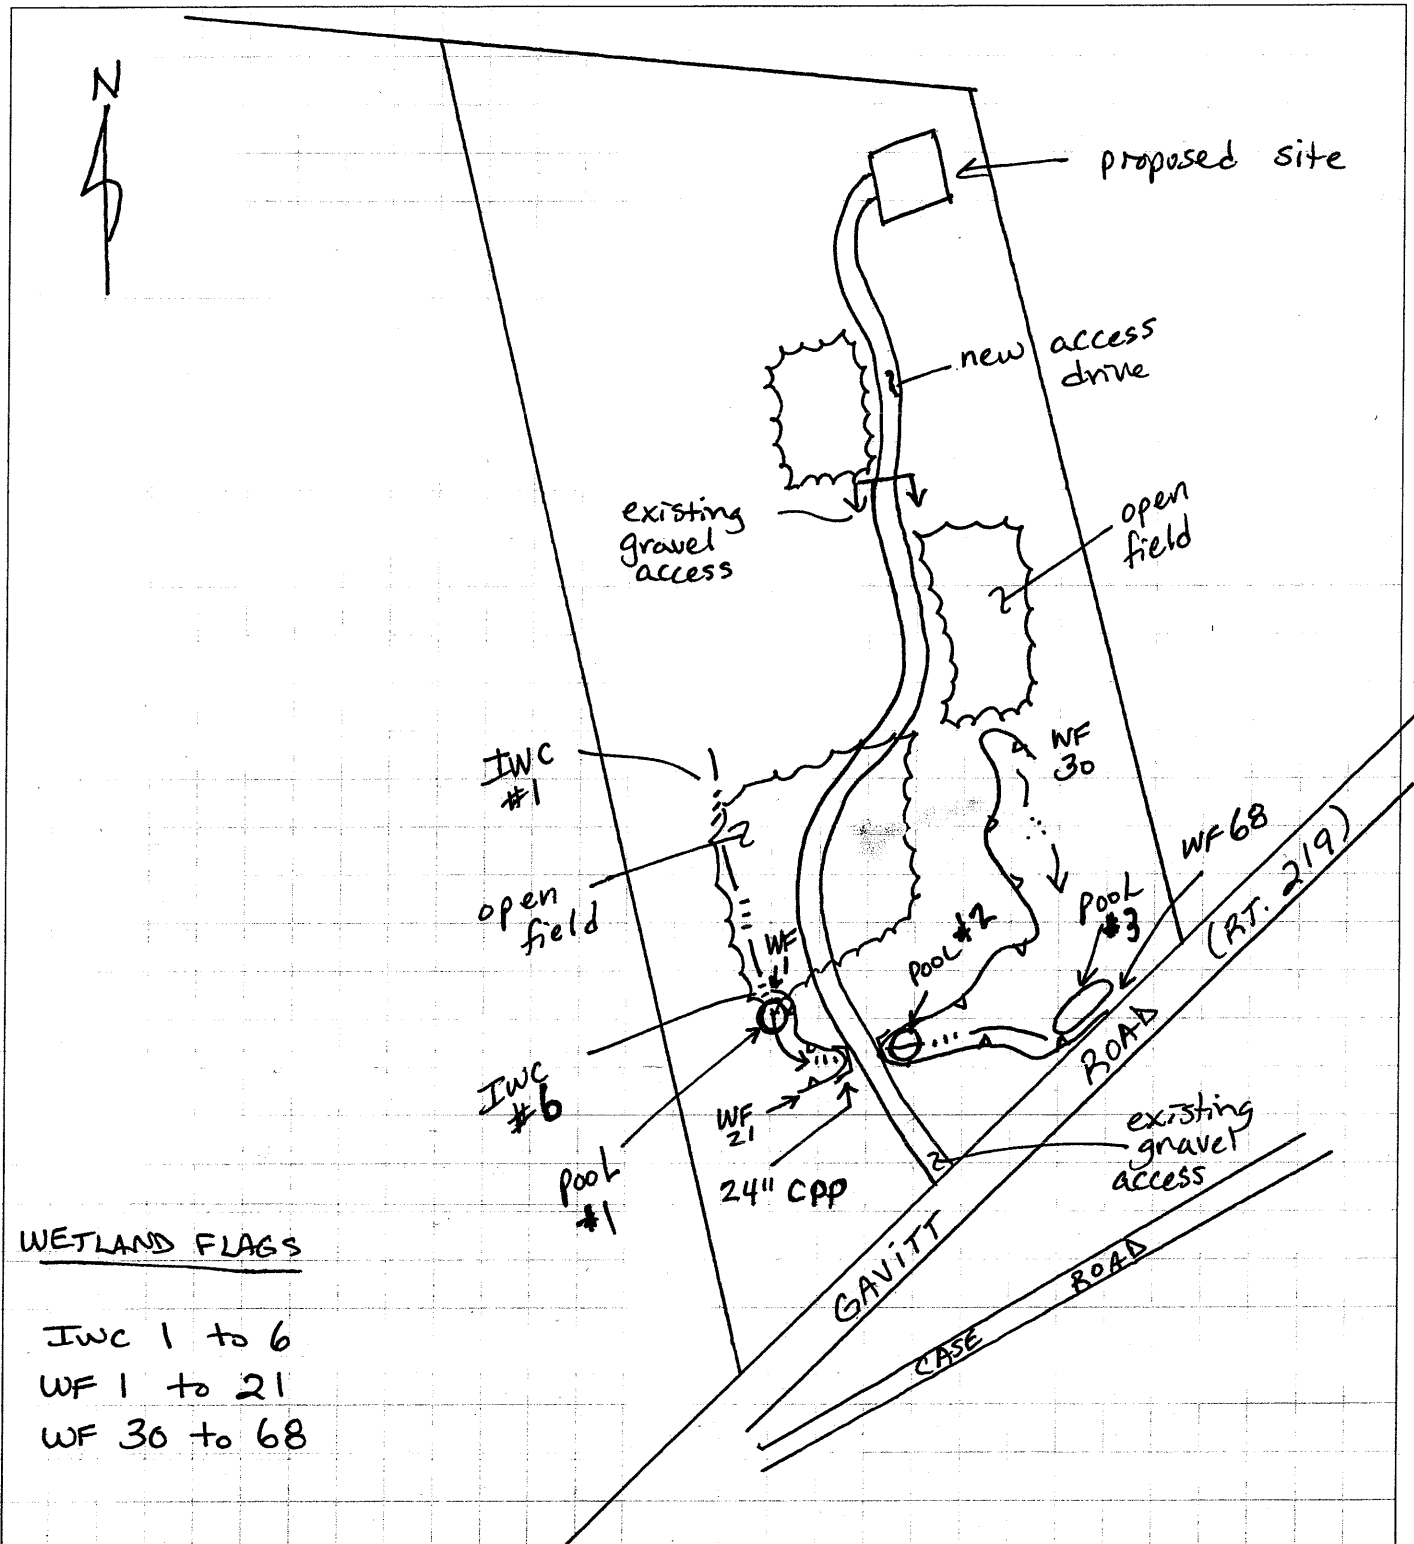 N
proposed site
new access
drive
existing
gravel
access
open
field
IWC
#1
WF
30
WF 68
(RT. 219)
open
field
WF
1
POOL #2
POOL
#3
IWC
#6
ROAD
WF
21
existing
gravel
access
POOL
#1
24" CPP
GAVITT
ROAD
CASE
WETLAND FLAGS
IWC 1 to 6
WF 1 to 21
WF 30 to 68